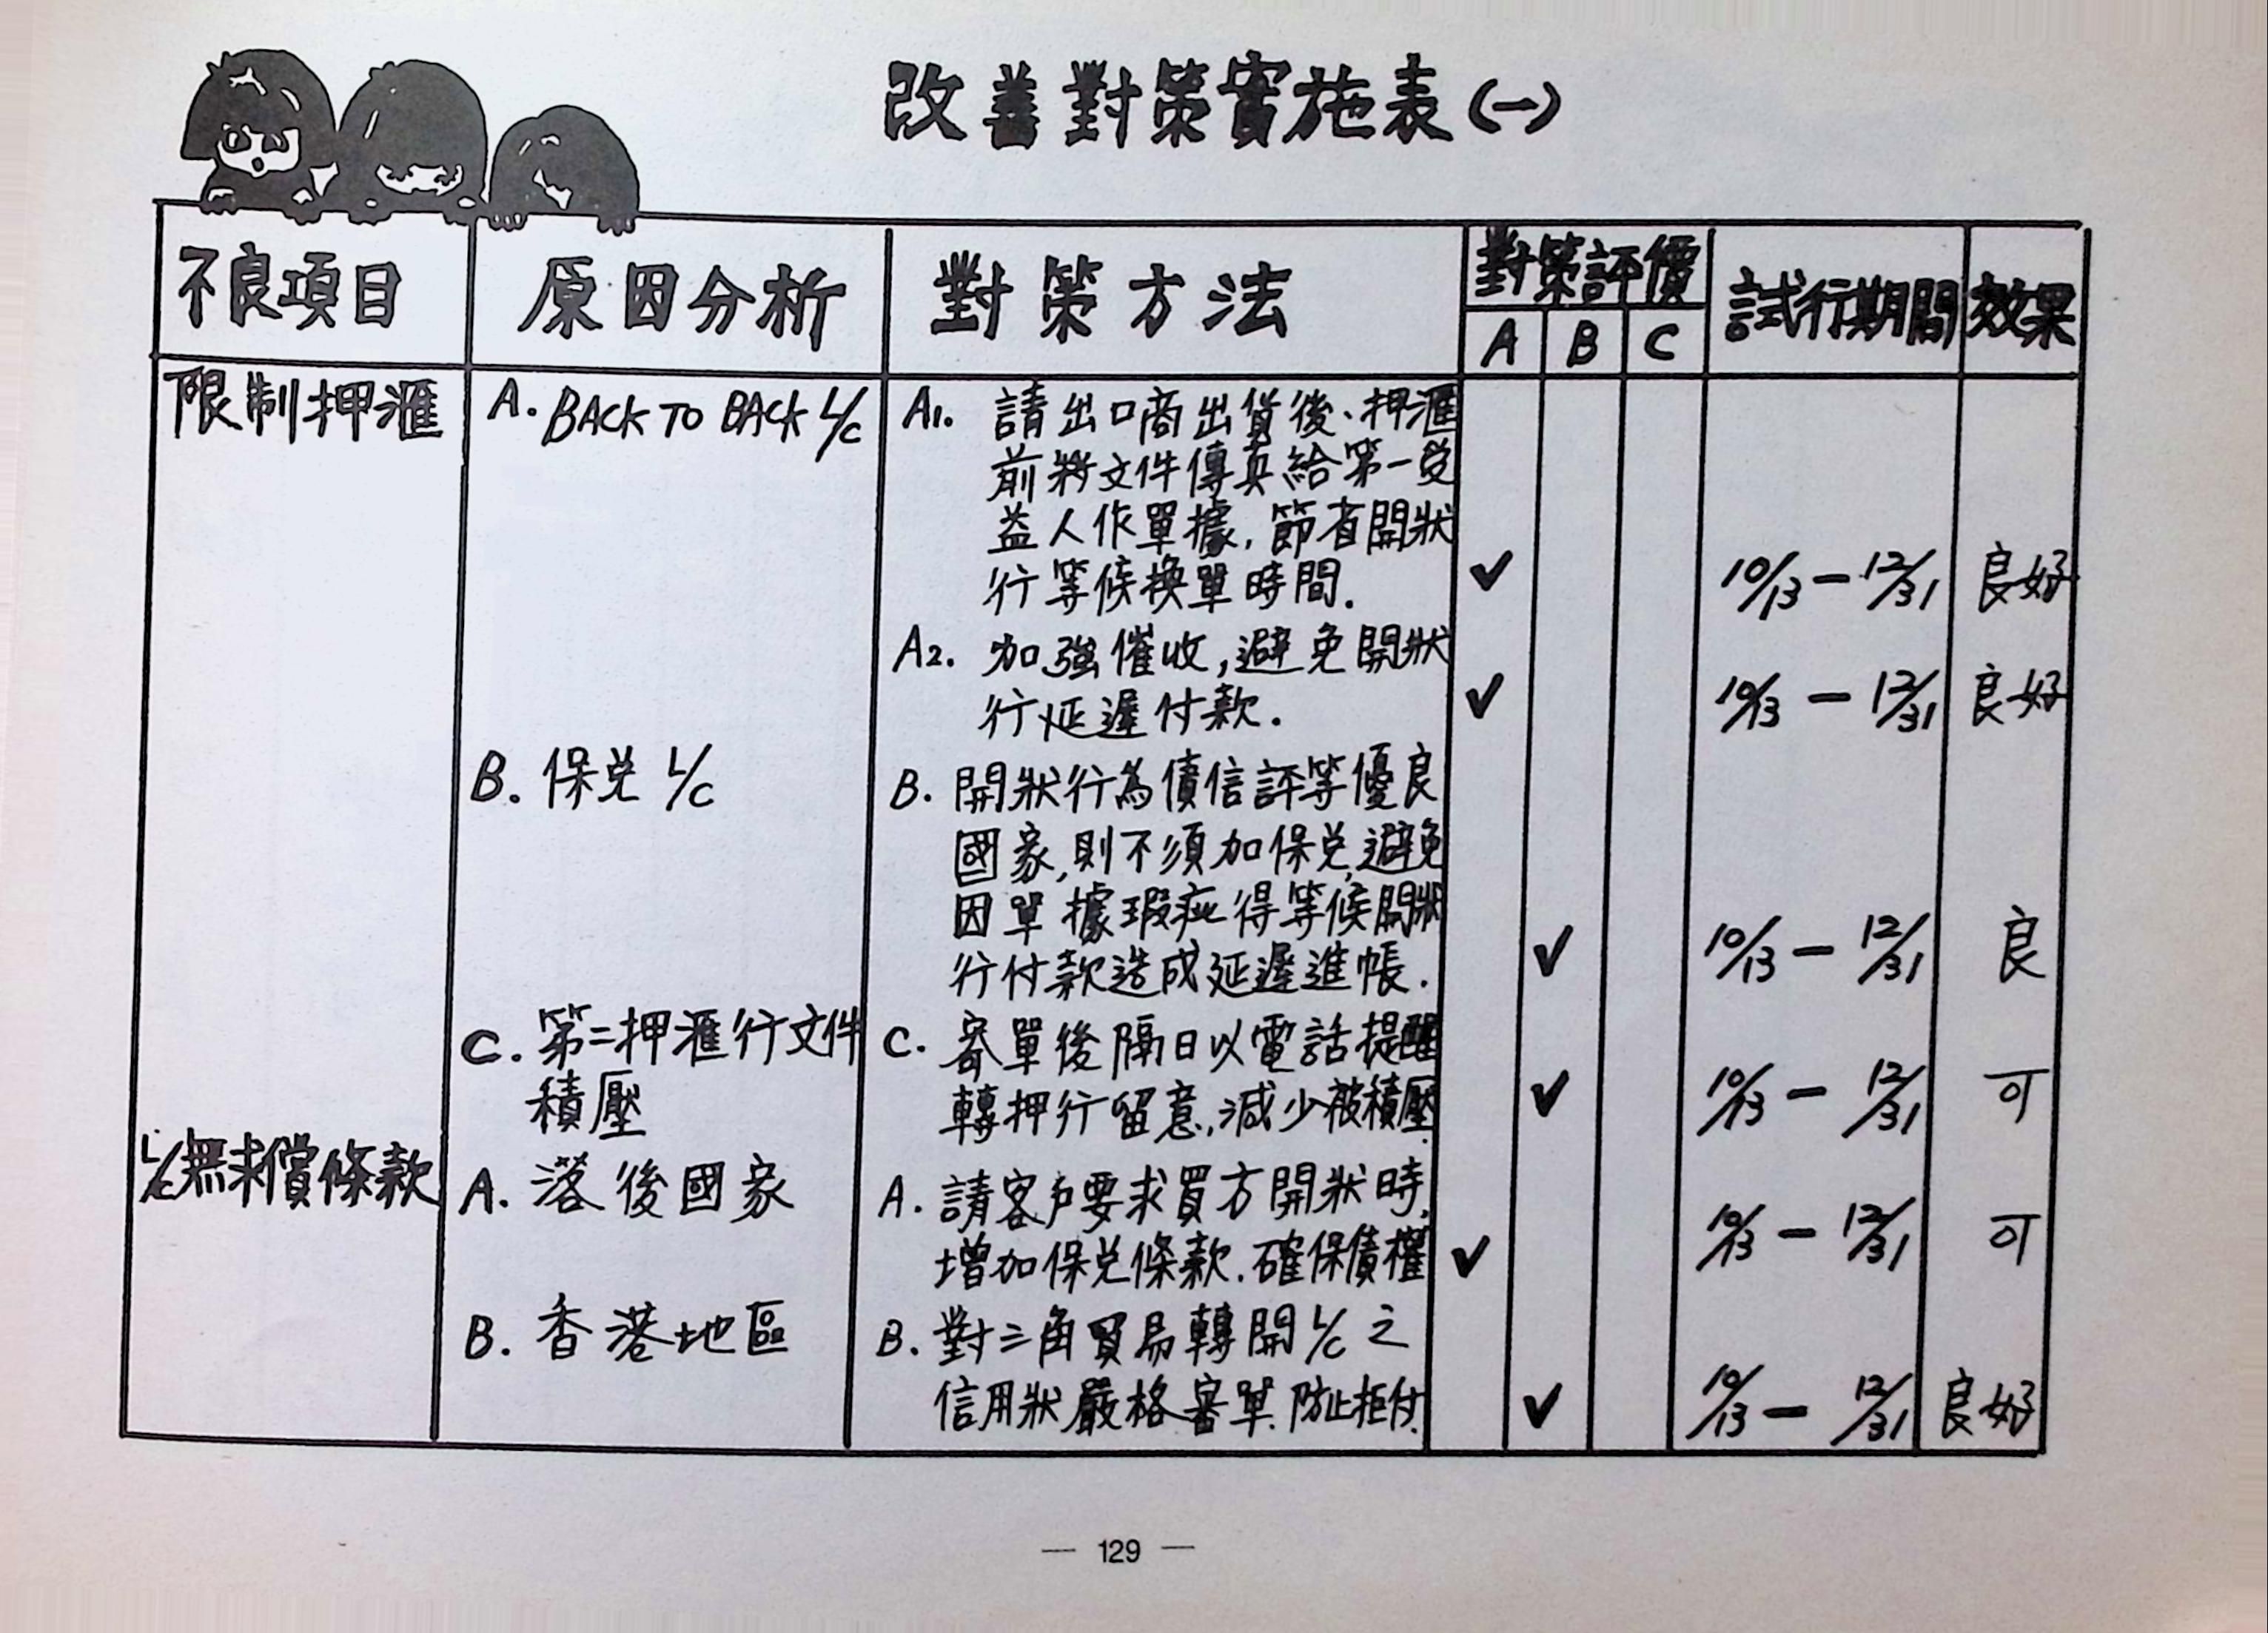 改善對策實施表(一)
不良項目
原因分析
對策方法
對策評價
A B C
試行期間
效果
限制押滙
A. BACK TO BACK L/C
A1. 請出口商出貨後、押滙
前將文件傳真給第一受
益人作單據, 節省開狀
行等候換單時間.
✓ 10/13 - 12/31 良好
A2. 加強催收, 避免開狀
行延遲付款.
✓ 10/13 - 12/31 良好
B. 保兌 L/C
B. 開狀行為債信評等優良
國家, 則不須加保兌, 避免
因單據瑕疵得等候開狀
行付款造成延遲進帳.
✓ 10/13 - 12/31 良
C. 第二押滙行文件
積壓
C. 寄單後隔日以電話提醒
轉押行留意, 減少被積壓.
✓ 10/13 - 12/31 可
L/C無求償條款
A. 落後國家
A. 請客戶要求買方開狀時,
增加保兌條款. 確保債權
✓ 10/13 - 12/31 可
B. 香港地區
B. 對三角貿易轉開 L/C 之
信用狀嚴格審單. 防止拒付.
✓ 10/13 - 12/31 良好
— 129 —